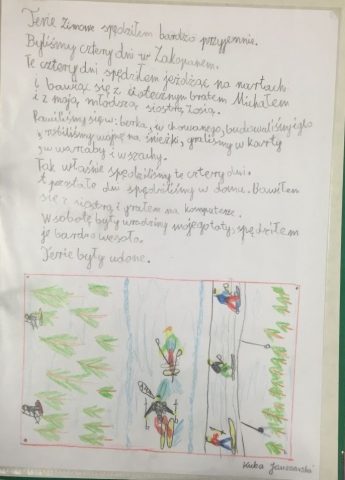 Ferie zimowe spędziłem bardzo przyjemnie.
Byliśmy cztery dni w Zakopanem.
Te cztery dni spędziłem jeżdżąc na nartach
i bawiąc się z ciotecznym bratem Michałem
i z moją młodszą siostrą Zosią.
Bawiliśmy się w: berka, w chowanego, budowaliśmy iglo
, robiliśmy wojnę na śnieżki, graliśmy w karty
, w warcaby i w szachy.
Tak właśnie spędziliśmy te cztery dni.
A pozstałe dni spędziliśmy w domu. Bawiłem
się z siostrą i grałem na komputerze.
W sobotę były urodziny mojego taty, spędziłem
je bardzo wesoło.
Ferie były udane.
Kuba